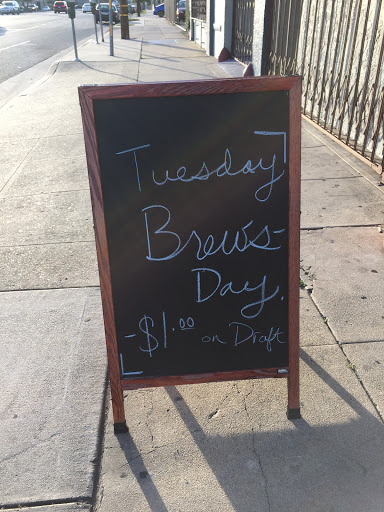 Tuesday
Brew's-
Day.
-$1.00 on Draft